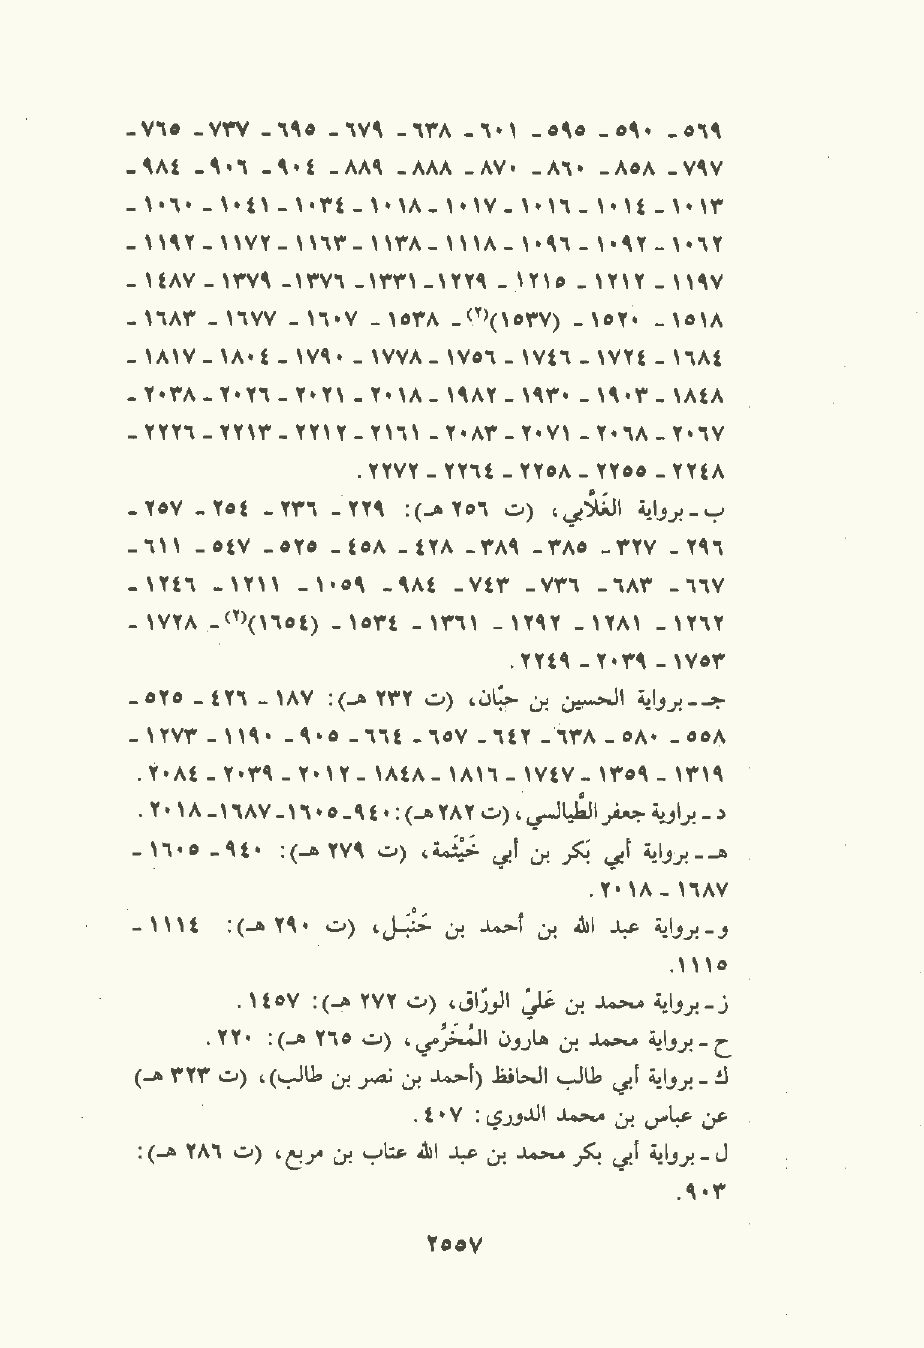 ٥٦٩ - ٥٩٠ - ٥٩٥ - ٦٠١ - ٦٣٨ - ٦٧٩ - ٦٩٥ - ٧٣٧ - ٧٦٥ -
٧٩٧ - ٨٥٨ - ٨٦٠ - ٨٧٠ - ٨٨٨ - ٨٨٩ - ٩٠٤ - ٩٠٦ - ٩٨٤ -
١٠١٣ - ١٠١٤ - ١٠١٦ - ١٠١٧ - ١٠١٨ - ١٠٣٤ - ١٠٤١ - ١٠٦٠ -
١٠٦٢ - ١٠٩٢ - ١٠٩٦ - ١١١٨ - ١١٣٨ - ١١٦٣ - ١١٧٢ - ١١٩٢ -
١١٩٧ - ١٢١٢ - ١٢١٥ - ١٢٢٩ - ١٣٣١ - ١٣٧٦ - ١٣٧٩ - ١٤٨٧ -
١٥١٨ - ١٥٢٠ - (١٥٣٧)(٢) - ١٥٣٨ - ١٦٠٧ - ١٦٧٧ - ١٦٨٣ -
١٦٨٤ - ١٧٢٤ - ١٧٤٦ - ١٧٥٦ - ١٧٧٨ - ١٧٩٠ - ١٨٠٤ - ١٨١٧ -
١٨٤٨ - ١٩٠٣ - ١٩٣٠ - ١٩٨٢ - ٢٠١٨ - ٢٠٢١ - ٢٠٢٦ - ٢٠٣٨ -
٢٠٦٧ - ٢٠٦٨ - ٢٠٧١ - ٢٠٨٣ - ٢١٦١ - ٢٢١٢ - ٢٢١٣ - ٢٢٢٦ -
٢٢٤٨ - ٢٢٥٥ - ٢٢٥٨ - ٢٢٦٤ - ٢٢٧٢ .
ب - برواية الغَلاَّبي، (ت ٢٥٦ هـ): ٢٢٩ - ٢٣٦ - ٢٥٤ - ٢٥٧ -
٢٩٦ - ٣٢٧ - ٣٨٥ - ٣٨٩ - ٤٢٨ - ٤٥٨ - ٥٢٥ - ٥٤٧ - ٦١١ -
٦٦٧ - ٦٨٣ - ٧٣٦ - ٧٤٣ - ٩٨٤ - ١٠٥٩ - ١٢١١ - ١٢٤٦ -
١٢٦٢ - ١٢٨١ - ١٢٩٢ - ١٣٦١ - ١٥٣٤ - (١٦٥٤)(٢) - ١٧٢٨ -
١٧٥٣ - ٢٠٣٩ - ٢٢٤٩ .
جـ - برواية الحسين بن حبَّان، (ت ٢٣٢ هـ): ١٨٧ - ٤٢٦ - ٥٢٥ -
٥٥٨ - ٥٨٠ - ٦٣٨ - ٦٤٢ - ٦٥٧ - ٦٦٤ - ٩٠٥ - ١١٩٠ - ١٢٧٣ -
١٣١٩ - ١٣٥٩ - ١٧٤٧ - ١٨١٦ - ١٨٤٨ - ٢٠١٢ - ٢٠٣٩ - ٢٠٨٤ .
د - برواية جعفر الطَّيالسي، (ت ٢٨٢ هـ): ٩٤٠ - ١٦٠٥ - ١٦٨٧ - ٢٠١٨ .
هـ - برواية أبي بَكر بن أبي خَيْثَمة، (ت ٢٧٩ هـ): ٩٤٠ - ١٦٠٥ -
١٦٨٧ - ٢٠١٨ .
و - برواية عبد الله بن أحمد بن حَنْبَـل، (ت ٢٩٠ هـ): ١١١٤ -
١١١٥.
ز - برواية محمد بن عَليّ الورَّاق، (ت ٢٧٢ هـ): ١٤٥٧ .
ح - برواية محمد بن هارون المُخَرِّمي، (ت ٢٦٥ هـ): ٢٢٠ .
ك - برواية أبي طالب الحافظ (أحمد بن نصر بن طالب)، (ت ٣٢٣ هـ)
عن عباس بن محمد الدوري: ٤٠٧ .
ل - برواية أبي بكر محمد بن عبد الله عتاب بن مربع، (ت ٢٨٦ هـ):
٩٠٣.
٢٥٥٧